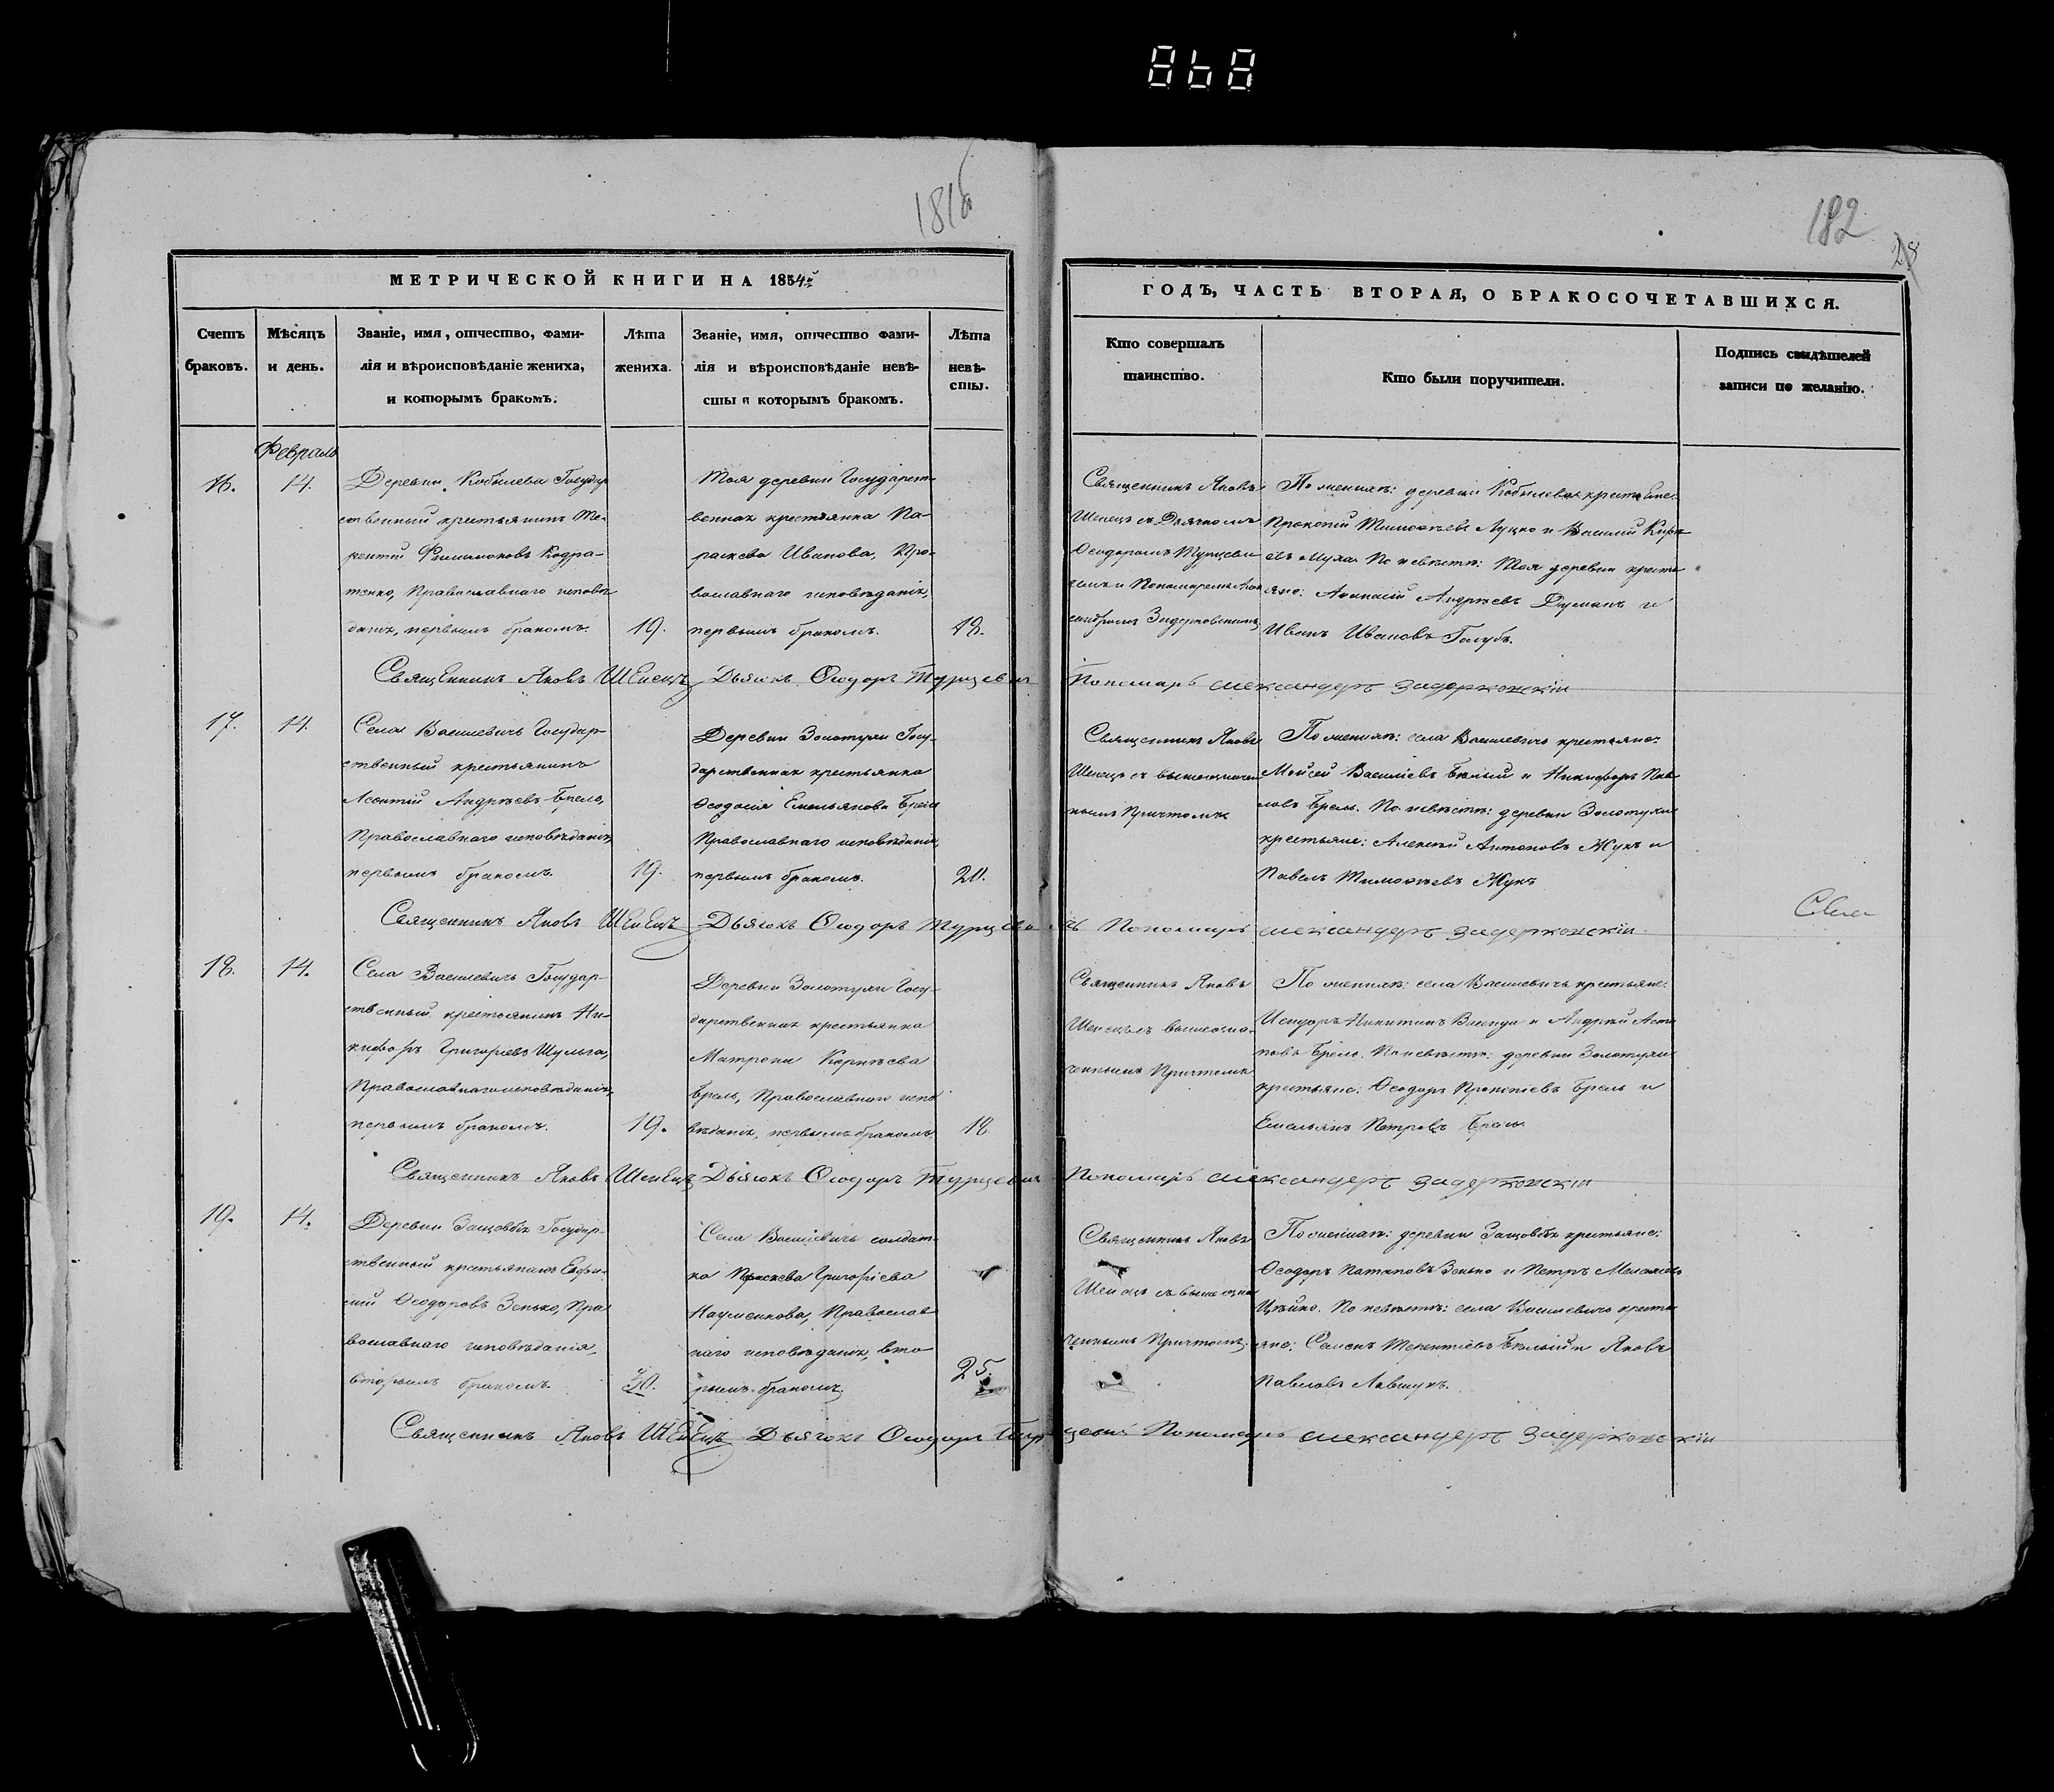 868
181б
182
28
МЕТРИЧЕСКОЙ КНИГИ НА 1854й
ГОДЪ, ЧАСТЬ ВТОРАЯ, О БРАКОСОЧЕТАВШИХСЯ.
Счетъ браковъ.
Мѣсяцъ и день.
Званіе, имя, отчество, фами-
лія и вѣроисповѣданіе жениха,
и которымъ бракомъ.
Лѣта
жениха.
Званіе, имя, отчество фами-
лія и вѣроисповѣданіе невѣ-
сты и которымъ бракомъ.
Лѣта
невѣ-
сты.
Кто совершалъ
таинство.
Кто были поручители.
Подпись свидѣтелей
записи по желанію.
Февраль
16.
14.
Деревни Кобылева Государ
ственный крестьянинъ Те-
рентій Филимоновъ Кодра-
тенко, Православнаго исповѣ
данія, первымъ бракомъ.
19.
Тоя деревни Государст-
венная крестьянка Па-
раскева Иванова, Пра-
вославнаго исповѣданія,
первымъ бракомъ.
18.
Священникъ Яковъ
Шенецъ съ Дьячкомъ
Ѳеодоромъ Турцеви
чемъ и Пономаремъ Алек
сандромъ Задерковскимъ
По женихѣ: деревни Кобылева крестьяне:
Прокопій Тимоѳѣевъ Луцко и Василій Кирѣ
евъ Муха. По невѣстѣ: Тоя деревни кресть
яне: Аѳанасій Андрѣевъ Думанъ и
Иванъ Ивановъ Голубъ.
Священникъ Яковъ Шенецъ Дьячокъ Ѳеодоръ Турцевичъ Пономарь Александеръ Задерковскій
17.
14.
Села Василевичъ Государ-
ственный крестьянинъ
Леонтій Андрѣевъ Брель,
Православнаго исповѣданія,
первымъ бракомъ.
19.
Деревни Золотухи Госу-
дарственная крестьянка
Ѳеодосія Емельянова Брель
Православнаго исповѣданія,
первымъ бракомъ.
20.
Священникъ Яковъ
Шенецъ съ вышеозначен
нымъ Причтомъ
По женихѣ: села Василевичъ крестьяне:
Мойсей Василіевъ Бѣлый и Никифоръ Пав
ловъ Брель. По невѣстѣ: деревни Золотухи
крестьяне: Алексѣй Антоновъ Жукъ и
Павелъ Тимоѳѣевъ Жукъ
Священникъ Яковъ Шенецъ Дьячокъ Ѳеодоръ Турцевичъ Пономарь Александеръ Задерковскій
18.
14.
Села Василевичъ Государ-
ственный крестьянинъ Ни-
кифоръ Григорьевъ Шульга,
Православнаго исповѣданія,
первымъ бракомъ.
19.
Деревни Золотухи Госу-
дарственная крестьянка
Матрона Корнѣева
Брель, Православнаго испо
вѣданія, первымъ бракомъ
18
Священникъ Яковъ
Шенецъ съ вышеозна-
ченнымъ Причтомъ
По женихѣ: села Василевичъ крестьяне:
Исидоръ Никитинъ и Андрѣй
Брель. По невѣстѣ: деревни Золотухи
крестьяне: Ѳеодоръ Прокопіевъ Брель и
Емельянъ Петровъ Брель.
Священникъ Яковъ Шенецъ Дьячокъ Ѳеодоръ Турцевичъ Пономарь Александеръ Задерковскій
19.
14.
Деревни Защовбья Государ-
ственный крестьянинъ Евѳи-
мій Ѳеодоровъ Зенько, Пра
вославнаго исповѣданія,
вторымъ бракомъ.
Села Василевичъ солдат-
ка Праскева Григоріева
Науменкова, Православ
наго исповѣданія, вто
рымъ бракомъ.
25.
Священникъ Яковъ
Шенецъ съ вышеозна
ченнымъ Причтомъ
По женихѣ: деревни Защовбья крестьяне:
Ѳеодоръ Патаповъ Зенько и Петръ
По невѣстѣ: села Василевичъ кресть
яне: Семенъ Терентіевъ Бѣлый и Яковъ
Павловъ Левшукъ.
Священникъ Яковъ Шенецъ Дьячокъ Ѳеодоръ Турцевичъ Пономарь Александеръ Задерковскій